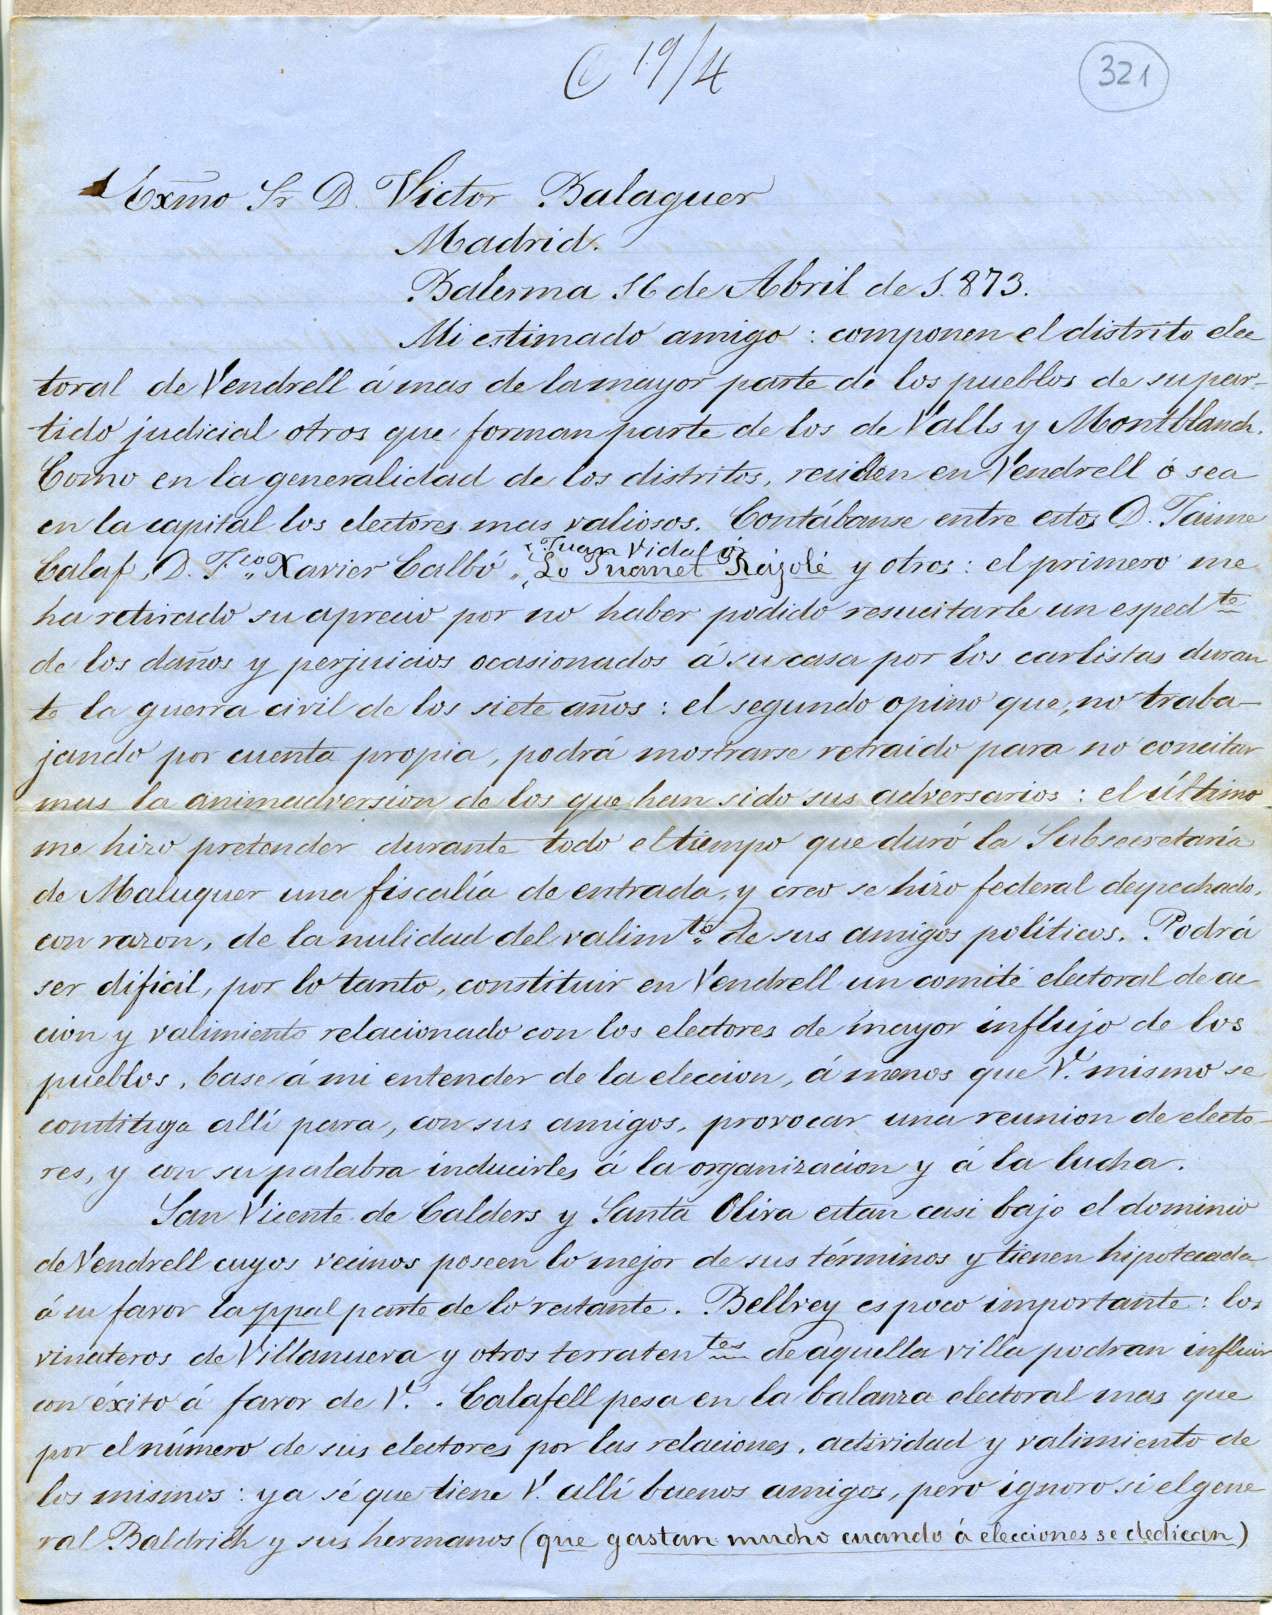 C 19/4
321
Exmo Sr D. Victor Balaguer
Madrid.
Balerma 16 de Abril de 1.873.
Mi estimado amigo: componen el distrito elec
toral de Vendrell á mas de la mayor parte de los pueblos de su par-
tido judicial otros que forman parte de los de Valls y Montblanch.
Como en la generalidad de los distritos, residen en Vendrell ó sea
en la capital los electores mas valiosos. Contábanse entre estos D. Jaime
Juan Vidal ó
Calaf, D. Fco Xavier Calbó, "Lo Juanet Rajolé" y otros: el primero me
ha retirado su aprecio por no haber podido resucitarle un espedte
de los daños y perjuicios ocasionados á su casa por los carlistas duran
te la guerra civil de los siete años: el segundo opino que, no traba-
jando por cuenta propia, podrá mostrarse retraido para no concitar
mas la animadversion de los que han sido sus adversarios: el último
me hizo pretender durante todo el tiempo que duró la Subsecretaría
de Maluquer una fiscalía de entrada, y creo se hizo federal despechado,
con razon, de la nulidad del valimto de sus amigos políticos. Podrá
ser dificil, por lo tanto, constituir en Vendrell un comité electoral de ac
cion y valimiento relacionado con los electores de mayor influjo de los
pueblos, base á mi entender de la eleccion, á menos que V. mismo se
constituya allí para, con sus amigos, provocar una reunion de electo-
res, y con su palabra inducirles á la organizacion y á la lucha.
San Vicente de Calders y Santa Oliva estan casi bajo el dominio
de Vendrell cuyos vecinos poseen lo mejor de sus términos y tienen hipotecada
á su favor la ppal parte de lo restante. Bellvey es poco importante: los
vinateros de Villanueva y otros terratentes de aquella villa podran influir
con éxito á favor de V. . Calafell pesa en la balanza electoral mas que
por el número de sus electores por las relaciones, actividad y valimiento de
los mismos: ya sé que tiene V. allí buenos amigos, pero ignoro si el gene
ral Baldrich y sus hermanos (que gastan mucho cuando á elecciones se dedican)